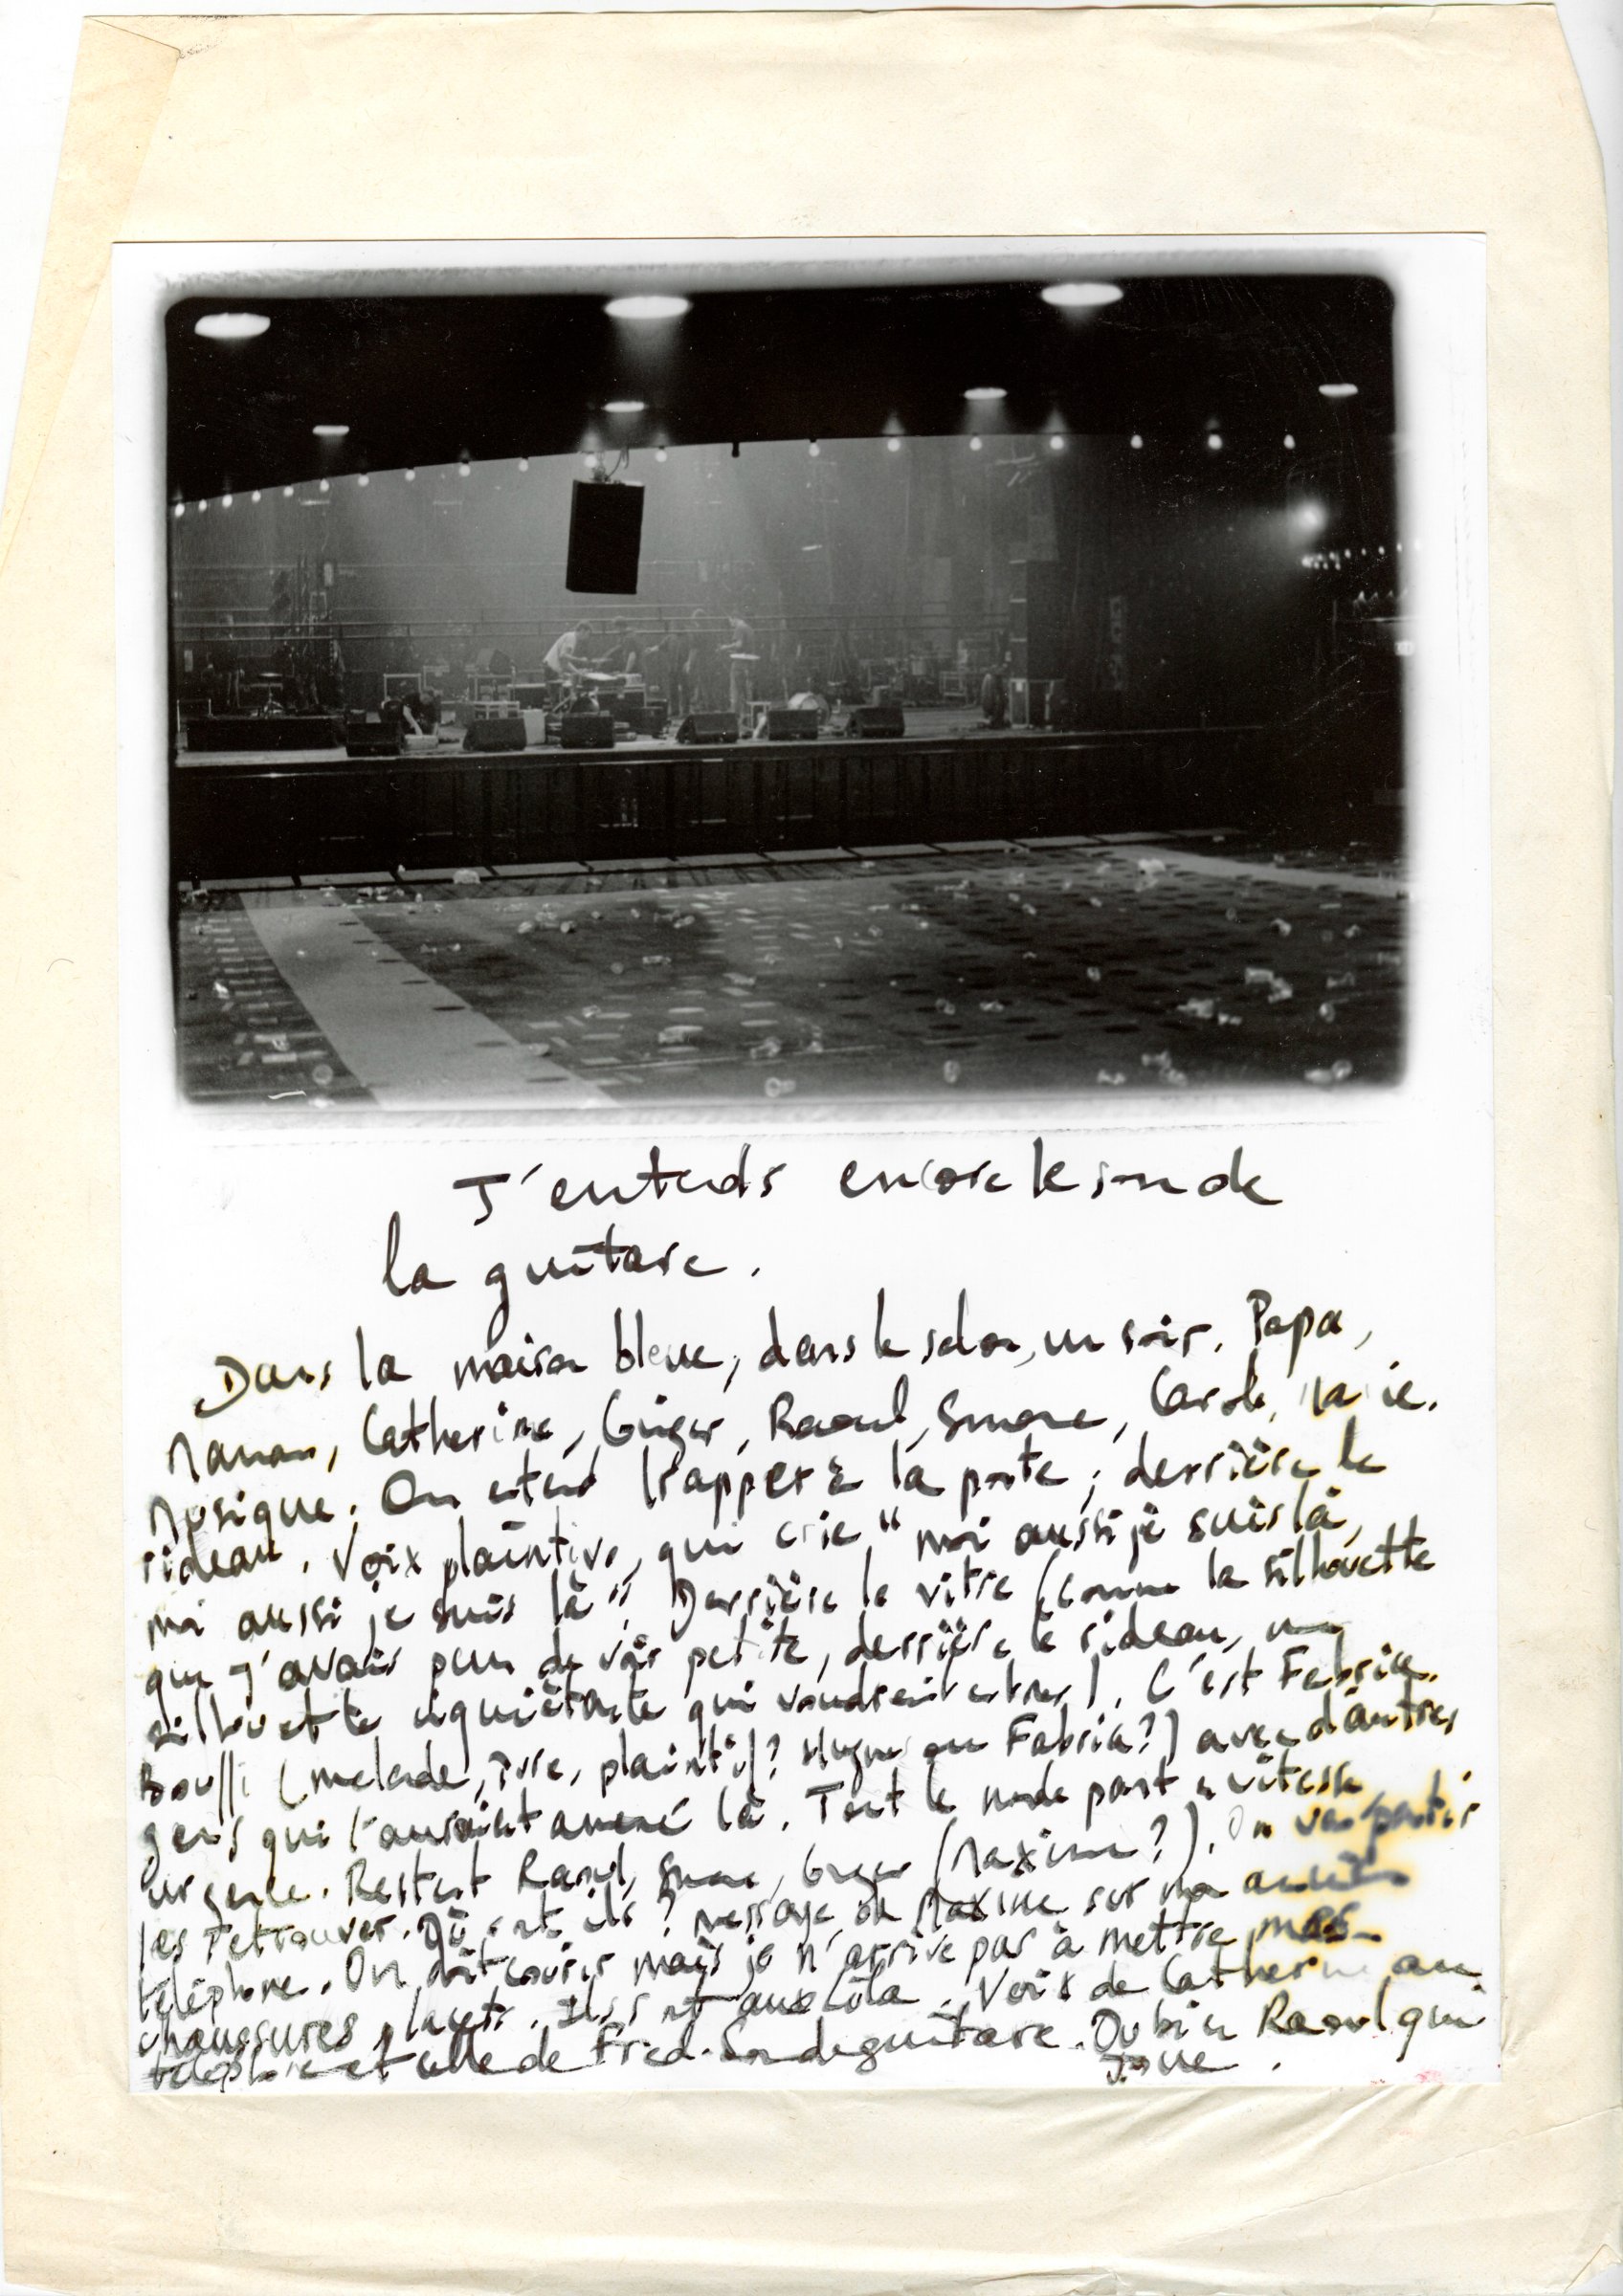 J'entends encore le son de
la guitare.
Dans la maison bleue, dans le salon, un soir. Papa,
Maman, Catherine, Raoul, Carole,
Musique. On entend frapper à la porte, derrière le
rideau. Voix plaintive, qui crie "moi aussi je suis là,
moi aussi je suis là". Derrière la vitre (comme la silhouette
que j'avais peur de voir petite, derrière le rideau, une
silhouette inquiétante qui voudrait entrer). C'est Fabrice.
Bouffi (malade, ivre, plaintif? Hugues ou Fabrice?) avec d'autres
gens qui l'auraient amené là. Tout le monde part à vitesse
urgente. Restent Raoul, (Maxime?). On va partir
les retrouver. Où sont ils? message de Maxime sur mon
téléphone. On doit courir mais je n'arrive pas à mettre mes
chaussures, lacets. Ils sont Voix de Catherine au
téléphone et celle de Fred. Son de guitare. Ou bien Raoul qui
joue.